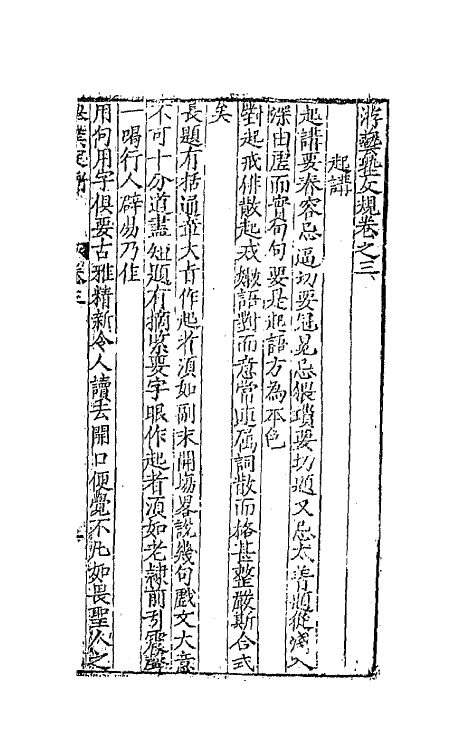 游藝塾文規卷之三
起講
起講要春容忌逼切要冠冕忌猥瑣要切題又忌太
深由虛而實句句要是起語方為本色
對起戒俳散起戒嫩語對而意常連屬詞散而格甚整嚴斯合式
矣
長題有括通章大旨作起者須如副末開場畧說幾句戲文大意
不可十分道盡短題有摘緊要字眼作起者須如老隸前引震聲
一喝行人辟易乃佳
用句用字俱要古雅精新令人讀去開口便覺不凡如畏聖人之
卷三